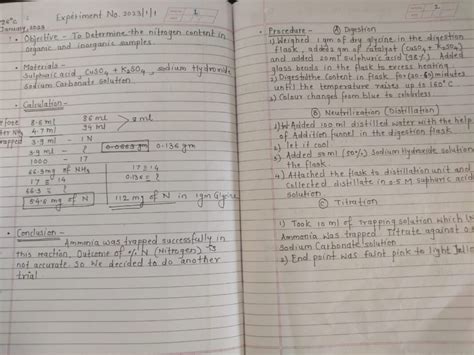 Experiment No. 2023/1/1
1
January, 2023
• Objective - To Determine the nitrogen content in
organic and inorganic samples.
• Materials -
Sulphuric acid, CuSO4 + K2SO4, Sodium Hydroxide
Sodium Carbonate solution.
• Calculation -
8.6 ml 86 ml
4.7 ml 34 ml
trapped 3.9 ml - 1N
3.9 ml - ?
0.136 gm
1000 - 17
66.3 mg of NH3
17 = 14
17 = 14
0.136 = ?
66.3 = ?
54.6 mg of N
112 mg of N in 1gm Glycine
• Conclusion -
Ammonia was trapped successfully in
this reaction. Outcome of % N (Nitrogen) is
not accurate. So we decided to do another
trial
2
• Procedure - (A) Digestion
1) Weighed 1 gm of dry glycine in the digestion
flask, added gm of catalyst (CuSO4 + K2SO4)
and added 20 ml sulphuric acid (98%). Added
glass beads in the flask to excess heating
2) Digest the Content in flask for minutes
until the temperature raises up to 160°C
3) Colour changes from blue to colorless
(B) Neutrilization (Distillation)
1) Added 100 ml distilled water with the help
of Addition funnel in the digestion flask
2) let it cool
3) Added 50 ml (50%) Sodium hydroxide solution
the flask.
4) Attached the flask to distillation unit and
Collected distillate in 0.5 M Sulphuric acid
Solution
(C) Titration
1) Took 10 ml of Trapping solution which
Ammonia was trapped. Titrate against
Sodium Carbonate solution
2) End point was faint pink to light